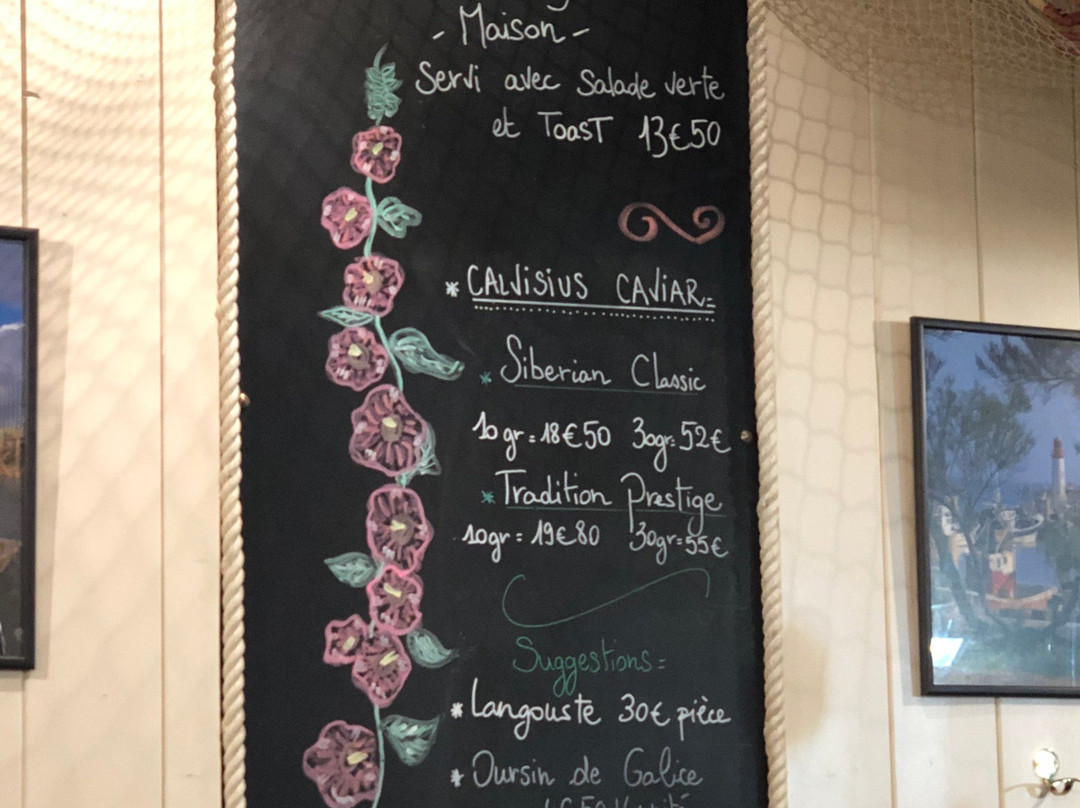 - Maison -
Servi avec Salade verte
et ToasT 13€50
* CALVISIUS CAVIAR =
* Siberian Classic
10gr = 18€50 30gr = 52€
* Tradition Prestige
10gr = 19€80 30gr = 55€
Suggestions =
* Langouste 30€ pièce
* Oursin de Galice